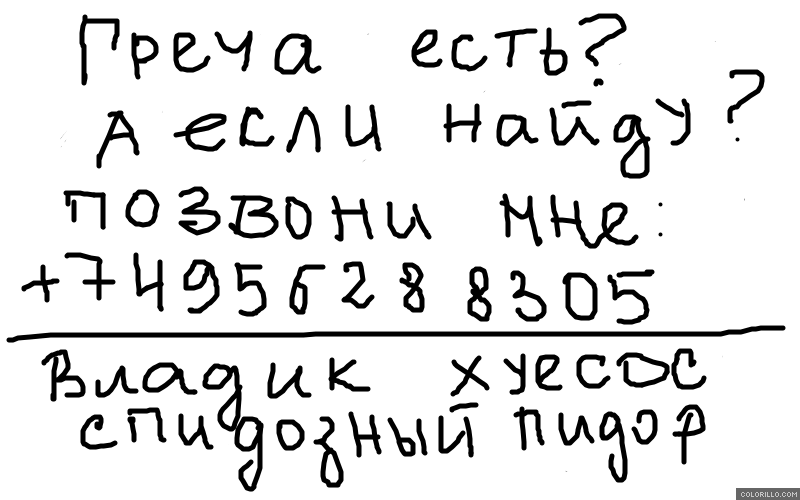 Греча есть?
А если найду?
позвони мне:
+74956288305
Владик хуесос
спидозный пидор
COLORILLO.COM